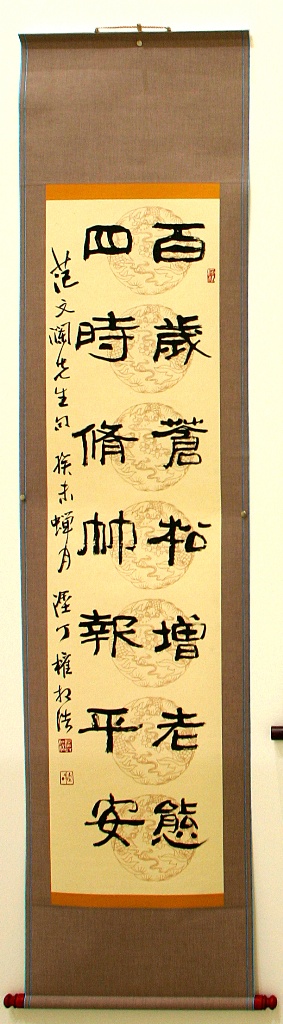 百歲蒼松增老態
四時脩竹報平安
范文瀾先生句 癸未蟬月